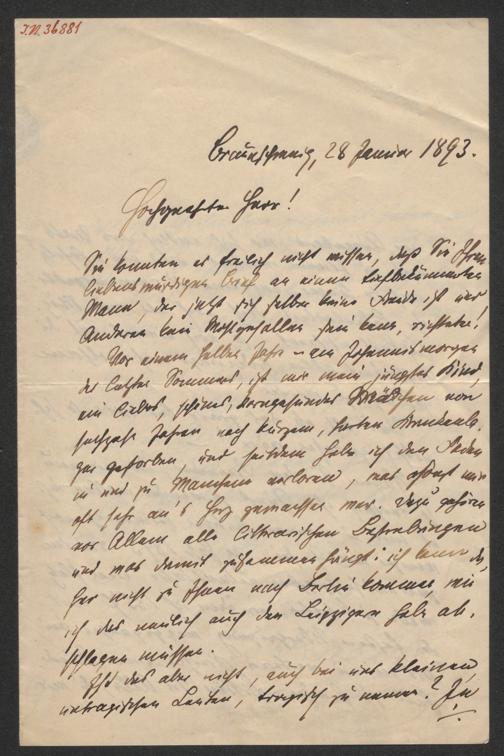 I.N. 36881
Braunschweig, 28 Januar 1893.
Hochgeehrter Herr!
Sie konnten es freilich nicht wissen, daß Sie Ihren
liebenswürdigen Brief an einen tiefbekümmerten
Mann, der jetzt sich selber keine Freude ist und
Anderen kein Wohlgefallen sein kann, richteten!
Vor einem halben Jahr – am Johannismorgen
des letzten Sommers, ist mir mein jüngstes Kind,
ein liebes, schönes, kerngesundes Mädchen von
sechzehn Jahren nach kurzem, hartem Krankenla-
ger gestorben, und seitdem habe ich den Faden
in und zu Manchem verloren, was sonst mir
oft sehr an's Herz gewachsen war. Dazu gehören
vor Allem alle litterarischen Bestrebungen
und was damit zusammen hängt: ich kann da-
her nicht zu Ihnen nach Berlin kommen, wie
ich das neulich auch den Leipzigern habe ab-
schlagen müssen.
Ist das aber nicht, auch bei uns kleinen,
untragischen Leuten, tragisch zu nennen? In